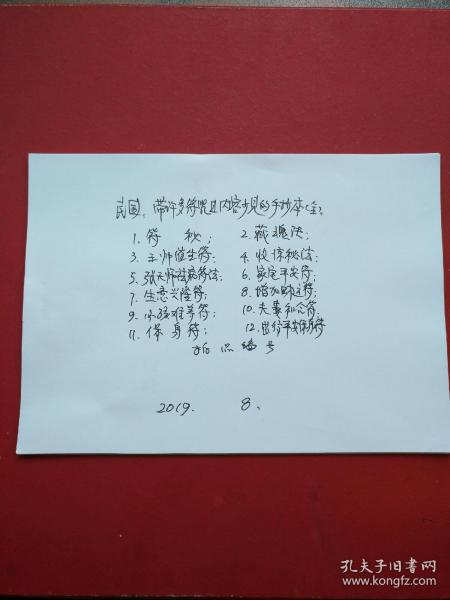 民国，带许多符咒且内容少见的手抄本(全)：
1. 符 秘； 2. 藏魂法；
3. 王师催生符； 4. 收惊秘法；
5. 张天师祛病符法； 6. 家宅平安符；
7. 生意兴隆符； 8. 增加财运符；
9. 小孩难养符； 10. 夫妻和合符
11. 保身符； 12. 出行平安保身符
拍品编号
2019. 8、
孔夫子旧书网
www.kongfz.com